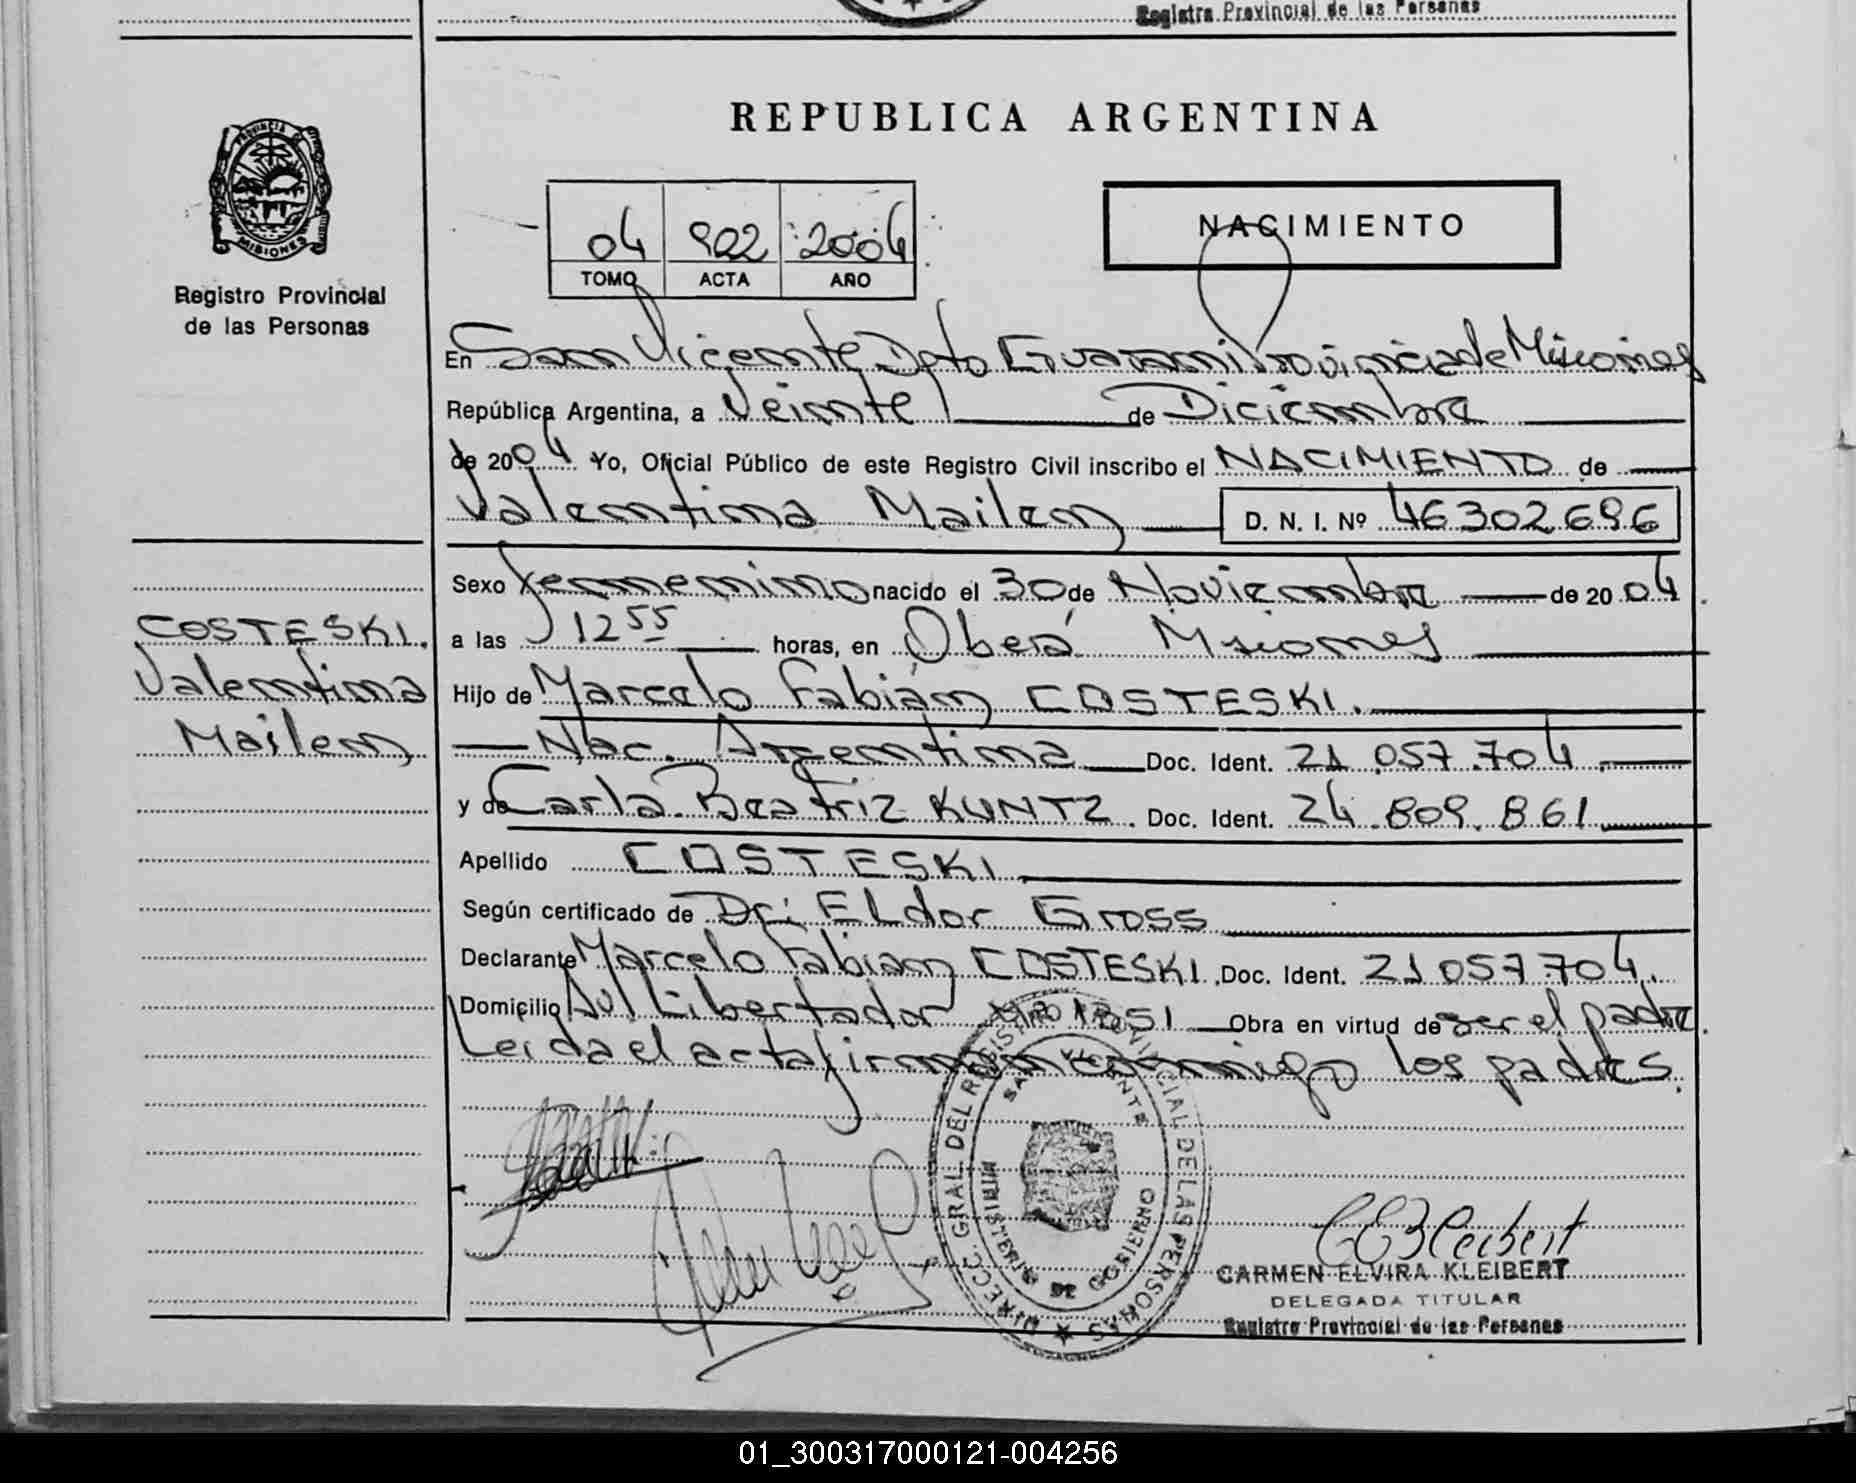 Registro Provincial de las Personas
REPUBLICA ARGENTINA
PROVINCIA DE
MISIONES
Registro Provincial
de las Personas
NACIMIENTO
04 902 2004
TOMO ACTA AÑO
En San Vicente Dpto Guarani Provincia de Misiones
República Argentina, a Veinte de Diciembre
de 2004 Yo, Oficial Público de este Registro Civil inscribo el NACIMIENTO de
Valentina Mailen D. N. I. Nº 46302696
Sexo femenino nacido el 30 de Noviembre de 2004
a las 12 55 horas, en Oberá Misiones
COSTESKI.
Valentina
Mailen
Hijo de Marcelo Fabián COSTESKI.
Nac. Argentina Doc. Ident. 21.057.704
y de Carla Beatriz KUNTZ. Doc. Ident. 24.809.861
Apellido COSTESKI
Según certificado de Dr. ELdor Gross
Declarante Marcelo Fabian COSTESKI. Doc. Ident. 21057704.
Domicilio Av Libertador Nº 1351 Obra en virtud de ser el padre.
Leida el acta firman conmigo los padres.
DIRECC. GRAL. DEL REGISTRO PROVINCIAL DE LAS PERSONAS
SAN VICENTE
MINISTERIO DE GOBIERNO
CEKleibert
CARMEN ELVIRA KLEIBERT
DELEGADA TITULAR
Registro Provincial de las Personas
01_300317000121-004256